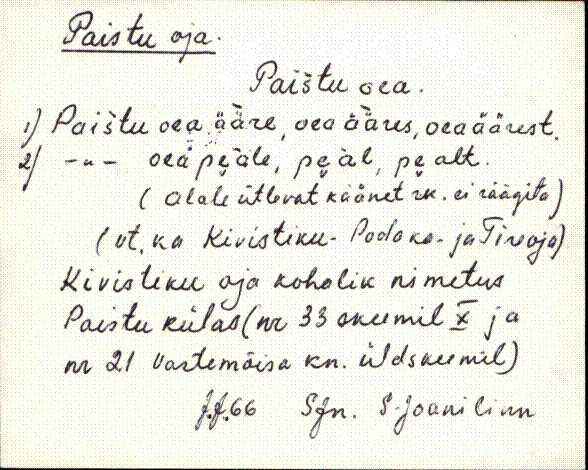 Paistu oja.
Paištu oea.
1) Paištu oea ääre, oea ääres, oeaäärest.
2) -"- oea pe̮äle, pe̮äl, pe̮alt.
(alale ütlevat käänet rk. ei räägita)
(vt. ka Kivistiku- Podaka- ja Tireoja)
Kivistiku oja kohalik nimetus
Paistu külas (nr 33 skeemil X ja
nr 21 Vastemõisa kn. üldskeemil)
J.J. 66 SJn. S-Jaani linn